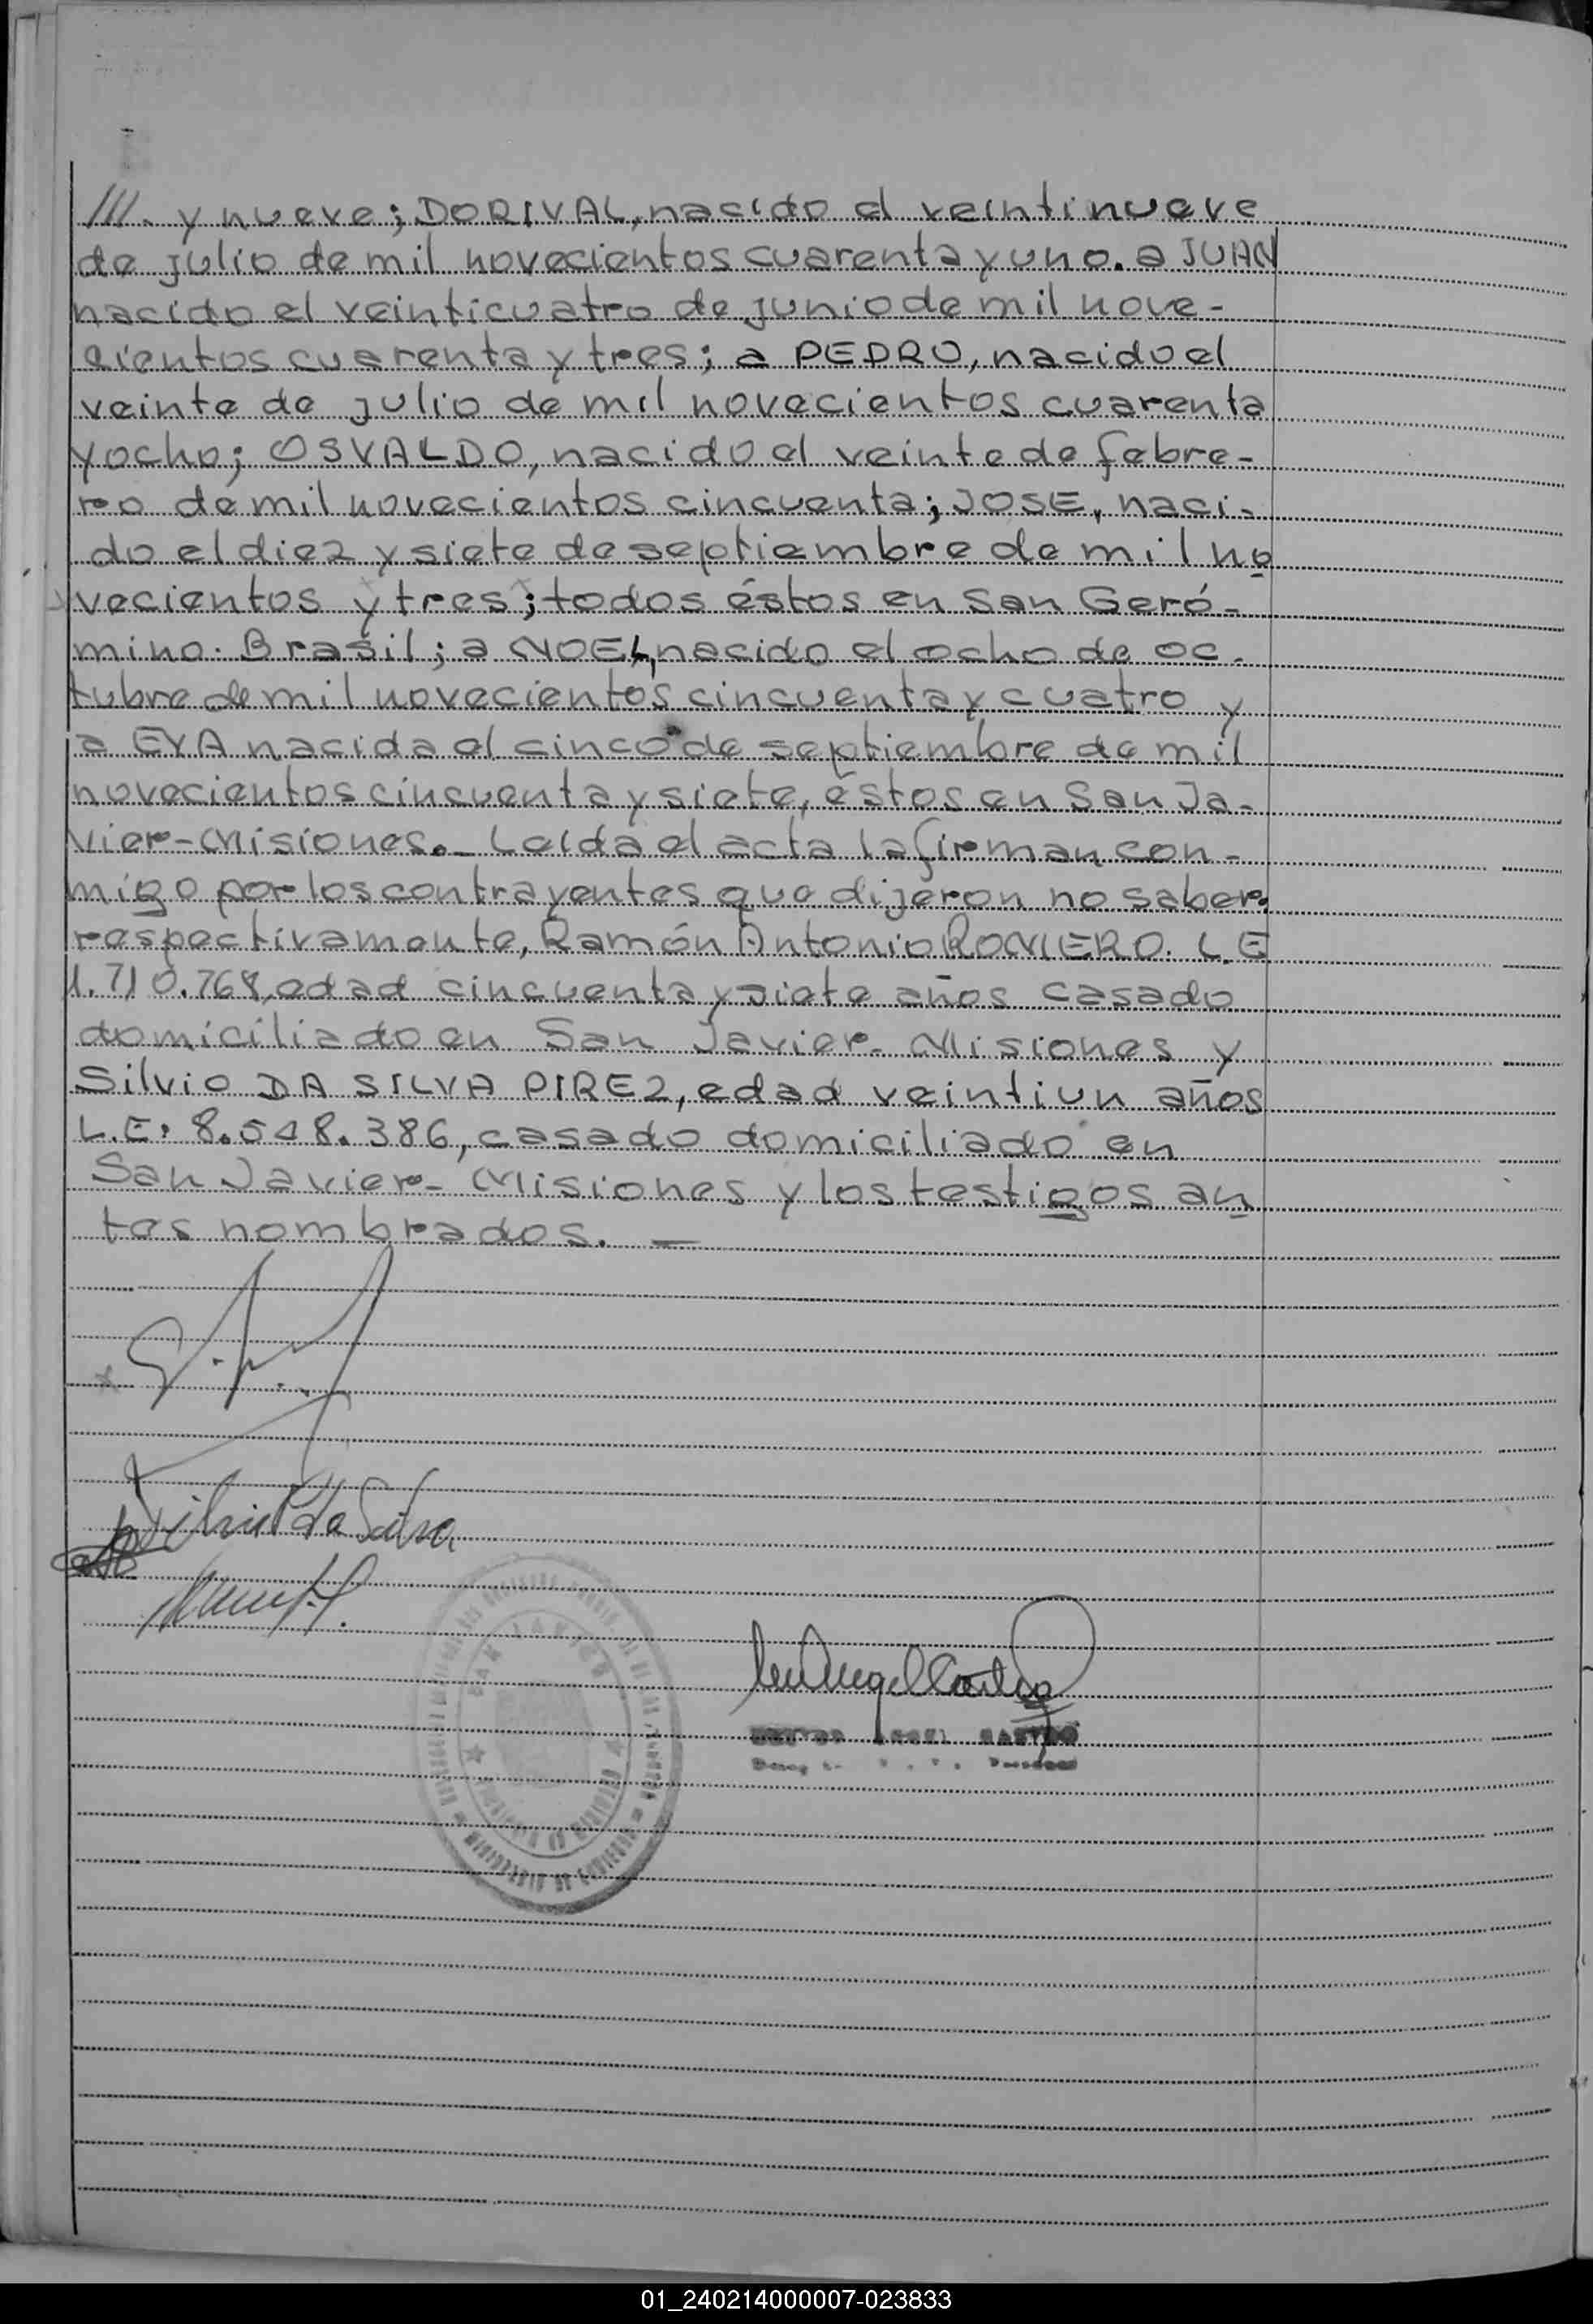 ///. y nueve; DORIVAL, nacido el veintinueve
de julio de mil novecientos cuarenta y uno. a JUAN
nacido el veinticuatro de junio de mil nove-
cientos cuarenta y tres; a PEDRO, nacido el
veinte de julio de mil novecientos cuarenta
y ocho; OSVALDO, nacido el veinte de febre-
ro de mil novecientos cincuenta; JOSE, naci-
do el diez y siete de septiembre de mil no
vecientos y tres; todos éstos en San Geró-
mino. Brasil; a NOEL, nacido el ocho de oc-
tubre de mil novecientos cincuenta y cuatro y
a EVA nacida el cinco de septiembre de mil
novecientos cincuenta y siete, éstos en San Ja-
vier-Misiones._ Leída el acta la firman con-
migo por los contrayentes que dijeron no saber.
respectivamente, Ramón Antonio ROMERO. L.E
1.710.768, edad cincuenta y siete años casado
domiciliado en San Javier- Misiones y
Silvio DA SILVA PIREZ, edad veintiun años
L.E. 8.548.386, casado domiciliado en
San Javier- Misiones y los testigos an
tes nombrados. —
Silvio P da Silva
SAN JAVIER
MINISTERIO DE GOBIERNO
CASTRO
01_240214000007-023833